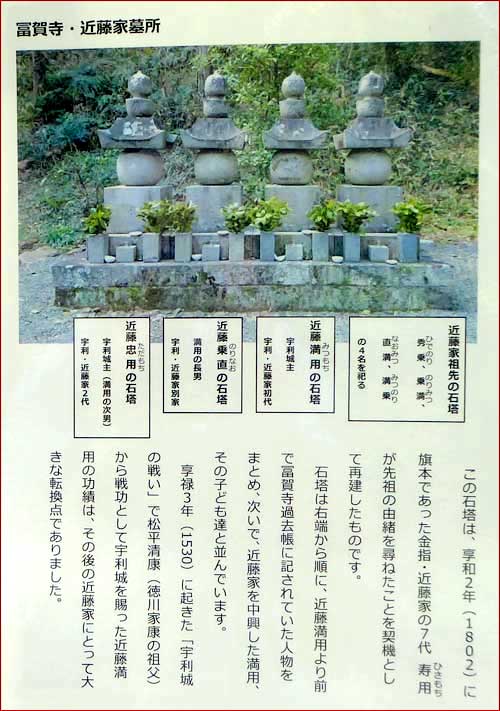 冨賀寺・近藤家墓所
近藤家祖先の石塔
秀乗、乗満、
ひでのり のりみつ
直満、満乗
なおみつ みつのり
の4名を祀る
近藤満用の石塔
みつもち
宇利城主
宇利・近藤家初代
近藤乗直の石塔
のりなお
満用の長男
宇利・近藤家別家
近藤忠用の石塔
ただもち
宇利城主（満用の次男）
宇利・近藤家2代
この石塔は、享和2年（1802）に
旗本であった金指・近藤家の7代 寿用
ひさもち
が先祖の由緒を尋ねたことを契機とし
て再建したものです。
石塔は右端から順に、近藤満用より前
で冨賀寺過去帳に記されていた人物を
まとめ、次いで、近藤家を中興した満用、
その子ども達と並んでいます。
享禄3年（1530）に起きた「宇利城
の戦い」で松平清康（徳川家康の祖父）
から戦功として宇利城を賜った近藤満
用の功績は、その後の近藤家にとって大
きな転換点でありました。